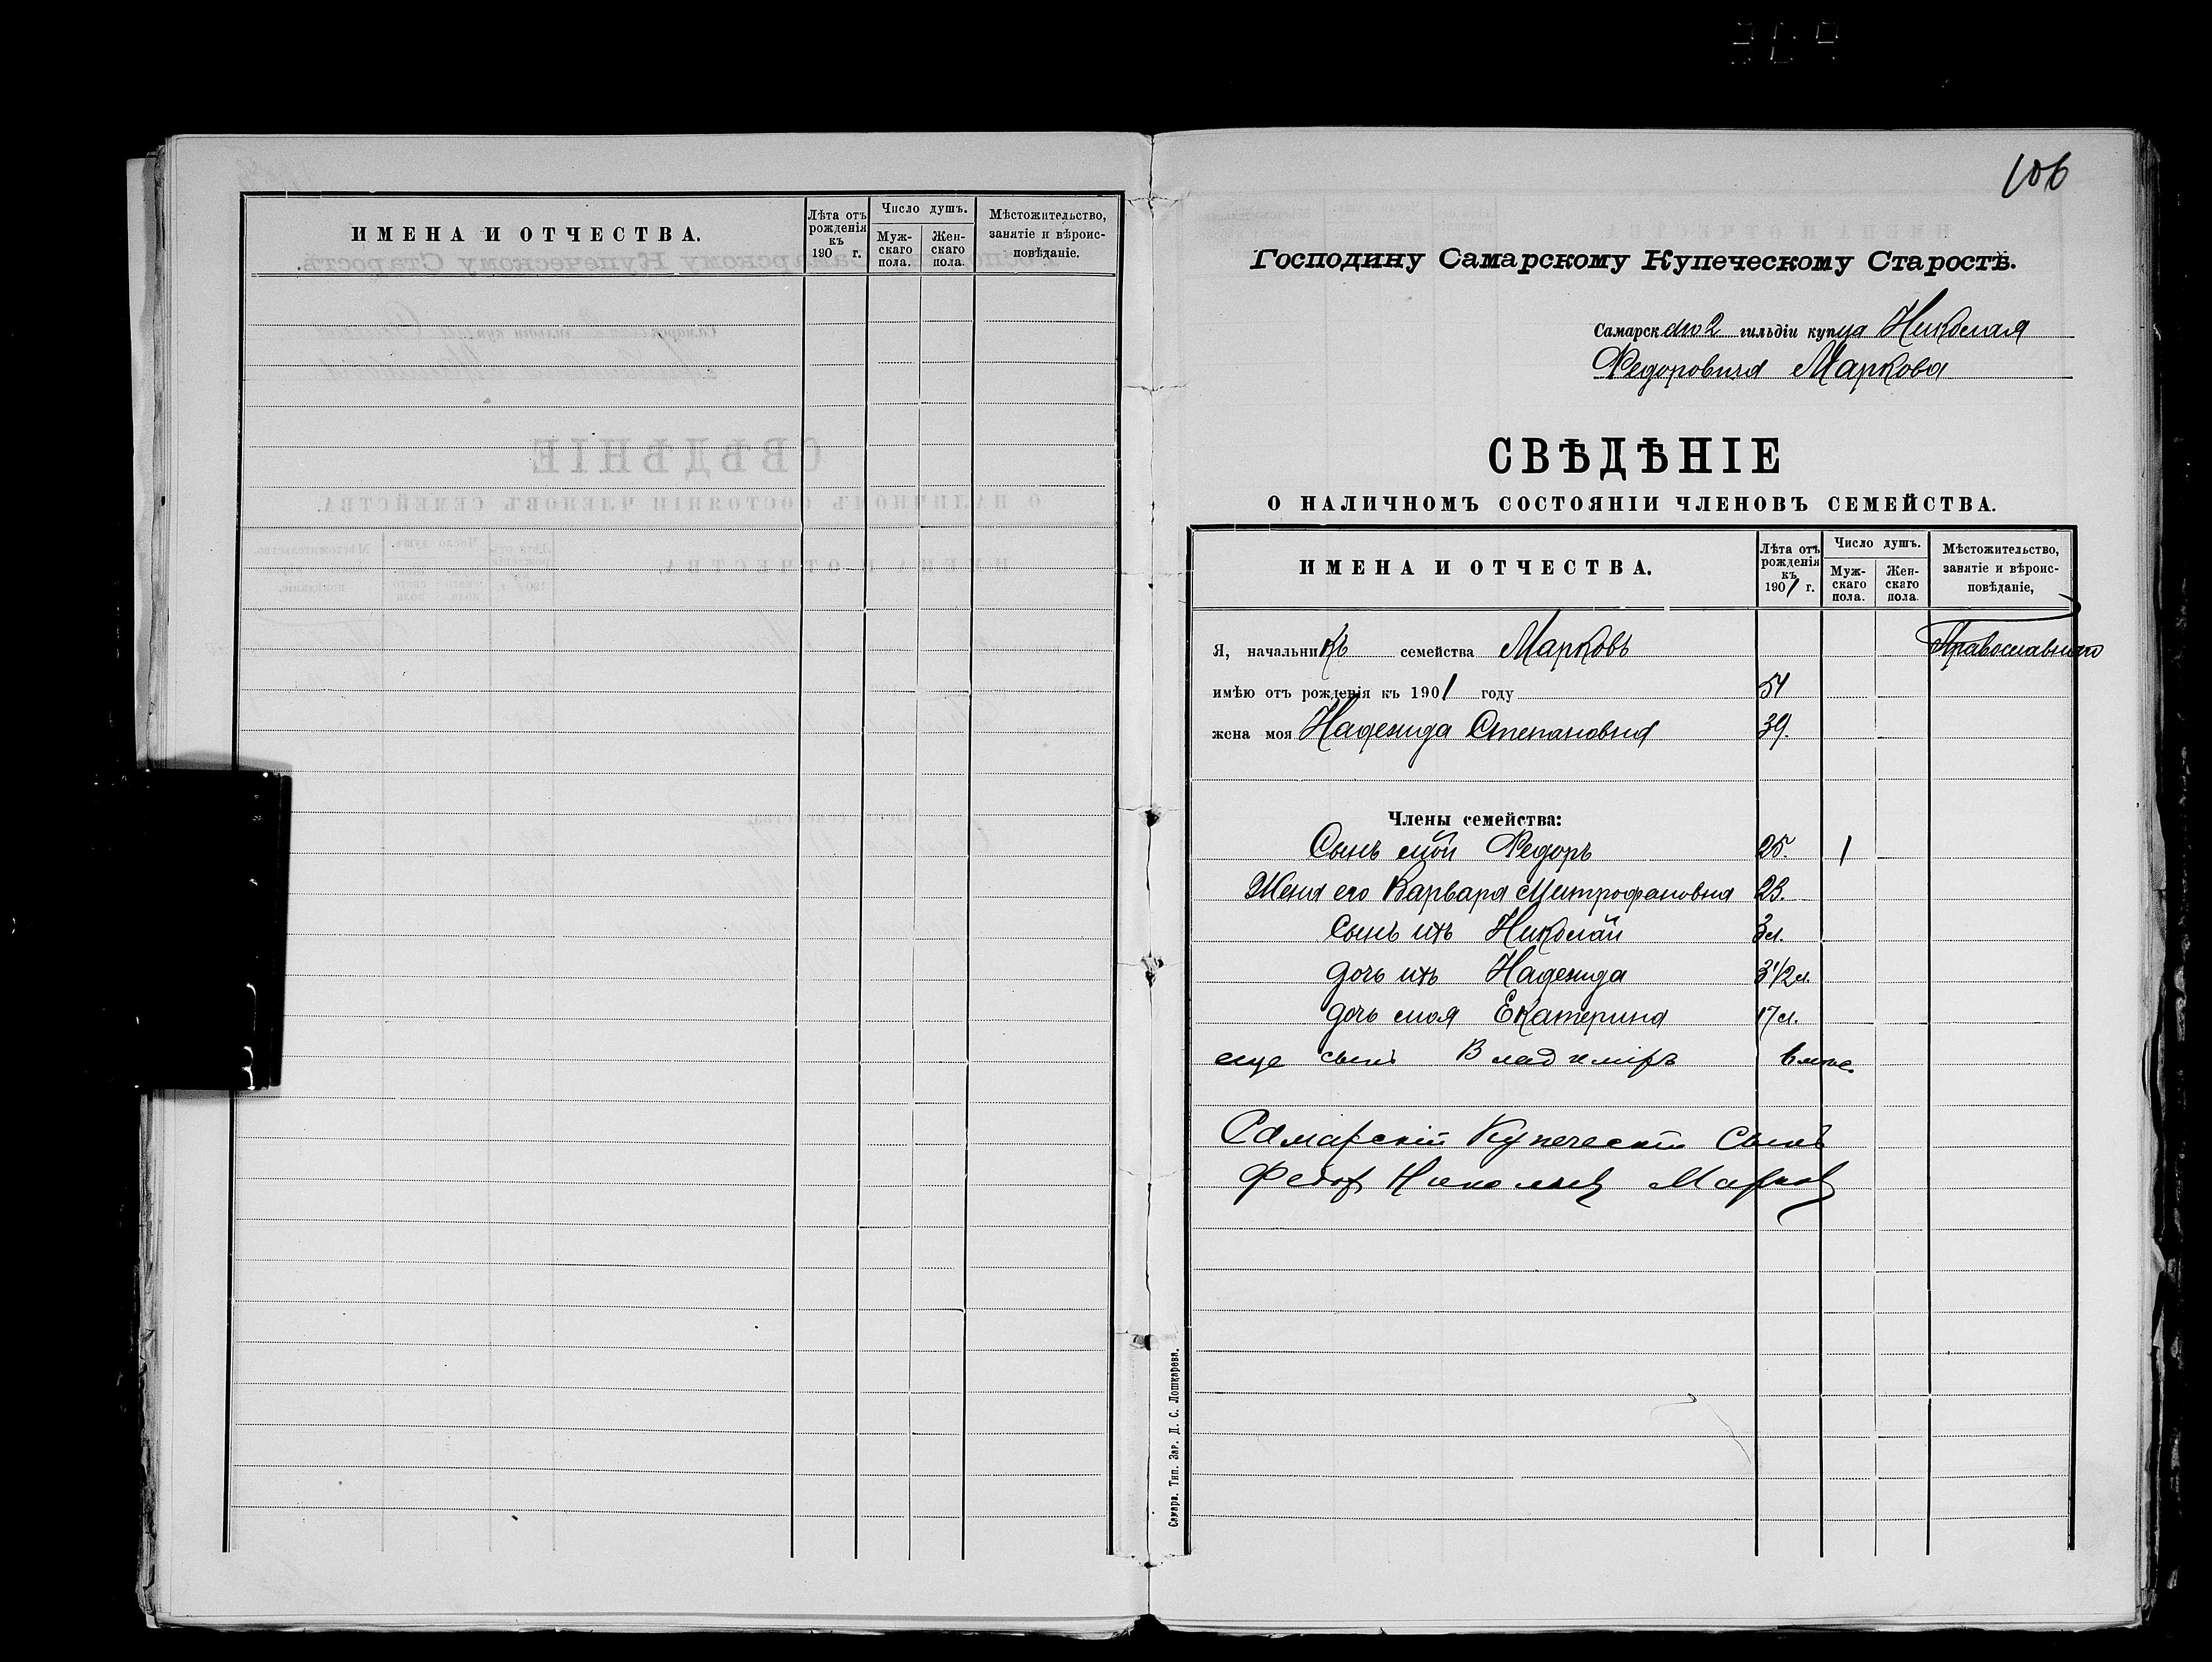 ИМЕНА И ОТЧЕСТВА.
Лѣта отъ рожденія къ 190 г.
Число душъ.
Муж-скаго пола.
Жен-скаго пола.
Мѣстожительство, занятіе и вѣроис-повѣданіе.
106
Господину Самарскому Купеческому Старостѣ.
Самарскаго 2 гильдіи купца Николая
Федоровича Маркова
СВѢДѢНІЕ
О НАЛИЧНОМЪ СОСТОЯНІИ ЧЛЕНОВЪ СЕМЕЙСТВА.
ИМЕНА И ОТЧЕСТВА.
Лѣта отъ рожденія къ 1901 г.
Число душъ.
Муж-скаго пола.
Жен-скаго пола.
Мѣстожительство, занятіе и вѣроис-повѣданіе,
Я, начальникъ семейства Марковъ Православнаго
имѣю отъ рожденія къ 1901 году 54
жена моя Надежида Степановна 39.
Члены семейства:
Сынъ мой Федоръ 25. 1
Жена его Варвара Митрофановна 23.
сынъ ихъ Николай 3 л.
дочь ихъ Надежида 3 1/2 л.
дочь моя Екатерина 17 л.
еще сынъ Владиміръ
Самарскій Купеческій Сынъ
Федор Николаев Марков
Самара. Тип. Зар. Д. С. Лошкарева.